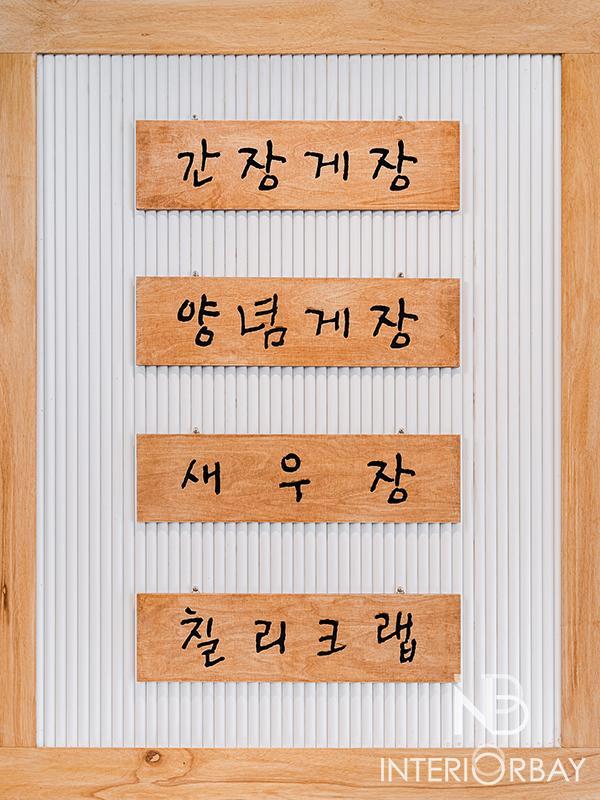 간장게장
양념게장
새우장
칠리크랩
NB
INTERIORBAY